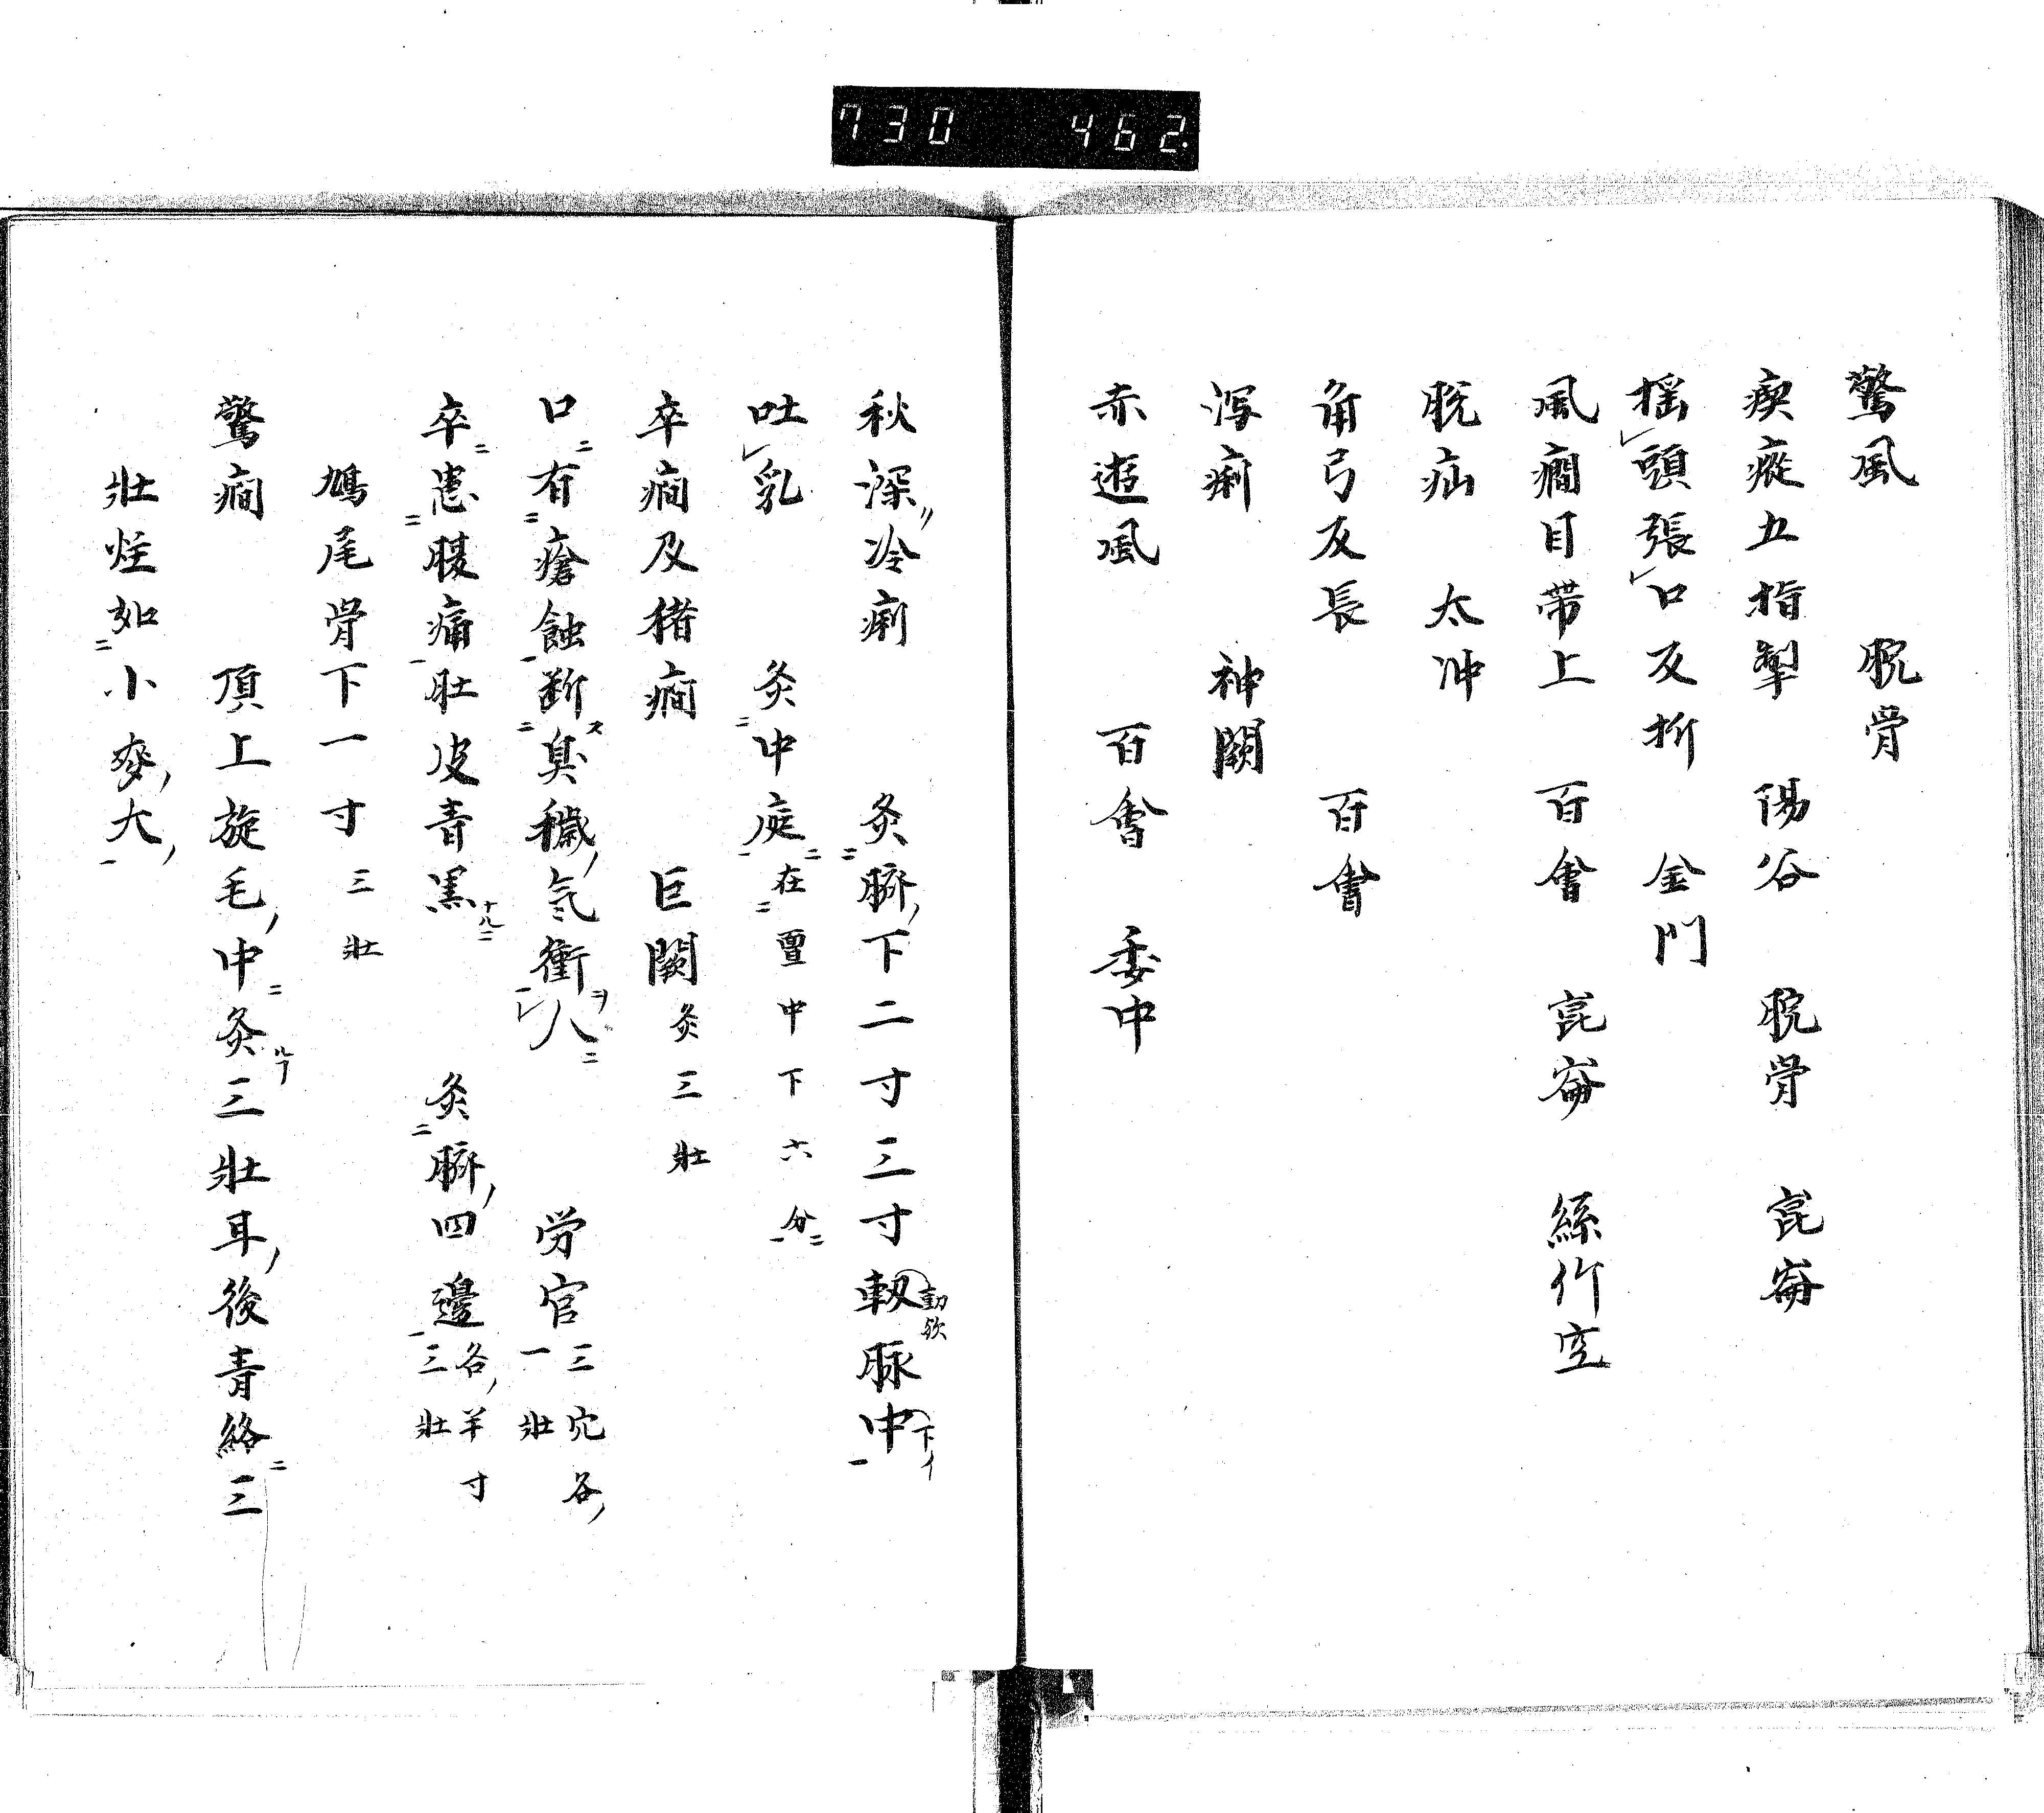 730 462.
驚風 腕骨
瘈瘲五指掣 陽谷 腕骨 崑崙
揺頭張口反折 金門
風癇目帯上 百會 崑崙 絲竹空
脱疝 太冲
角弓反長 百會
瀉痢 神闕
赤遊風 百會 委中
秋深冷痢 灸臍下二寸三寸動脉中
動欤 下イ
吐乳 灸中庭在亶中下六分
卒癇及猪癇 巨闕灸三壮
口有瘡蝕断臭穢気衝人 労宮三穴各一壮
卒患腹痛肚皮青黒 灸臍四邊各半寸三壮
鳩尾骨下一寸三壮
驚癇 頂上旋毛中灸三壮耳後青絡三
壮炷如小麥大